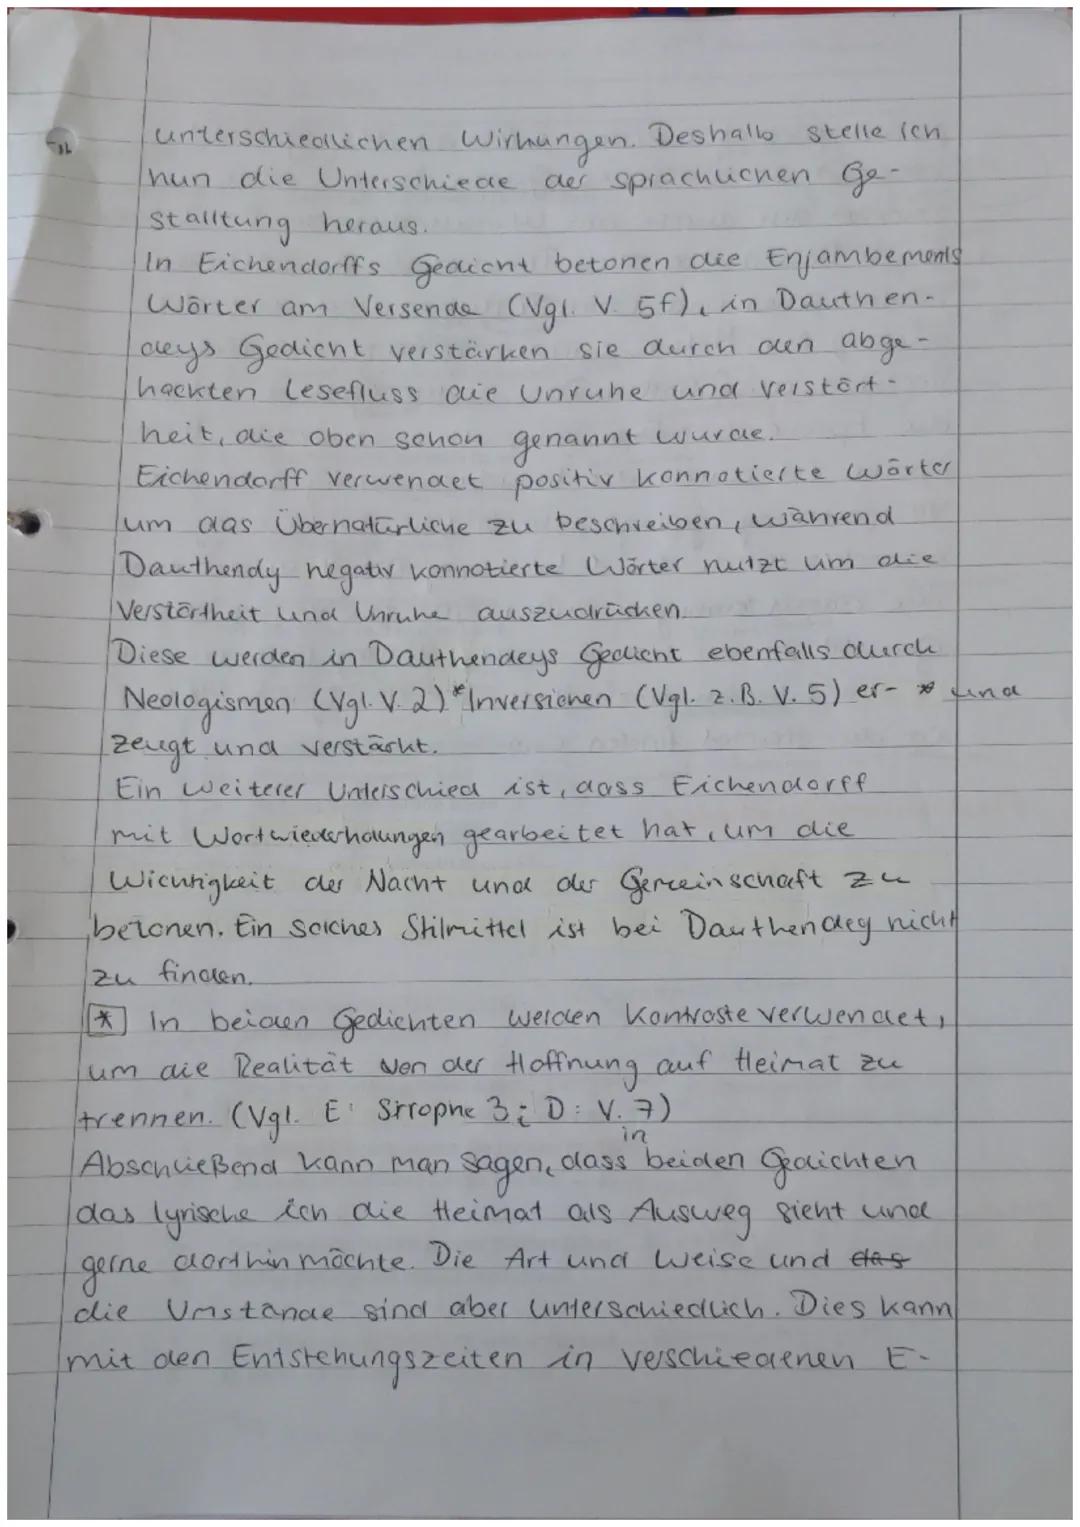 unterschiedlichen Wirkungen. Deshalb stelle ich
nun die Unterschiede der sprachlichen Ge-
stalltung heraus.
In Eichendorffs Gedicht betonen die Enjambements
Wörter am Versende (Vgl. V. 5f), in Dauthen-
deys Gedicht verstärken sie durch den abge-
hackten Lesefluss die Unruhe und Verstört-
heit, die oben schon genannt wurde.
Eichendorff verwendet positiv konnotierte Wörter
um das Übernatürliche zu beschreiben, während
Dauthendy negativ konnotierte Wörter nutzt um die
Verstörtheit und Unruhe auszudrücken.
Diese werden in Dauthendeys Gedicht ebenfalls durch
Neologismen (Vgl. V. 2)* Inversionen (Vgl. z.B. V. 5) er- * und
zeugt und verstärkt.
Ein weiterer Unterschied ist, dass Eichendorff
mit Wortwiederholungen gearbeitet hat, um die
Wichtigkeit der Nacht und der Gemeinschaft zu
betonen. Ein solches Stilmittel ist bei Dauthendey nicht
zu finden.
* In beiden Gedichten werden Kontraste verwendet,
um die Realität von der Hoffnung auf Heimat zu
trennen. (Vgl. E: Strophe 3; D: V. 7)
in
Abschließend kann man sagen, dass beiden Gedichten
das lyrische ich die Heimat als Ausweg sieht und
gerne dorthin möchte. Die Art und Weise und das
die Umstände sind aber unterschiedlich. Dies kann
mit den Entstehungszeiten in verschiedenen E-